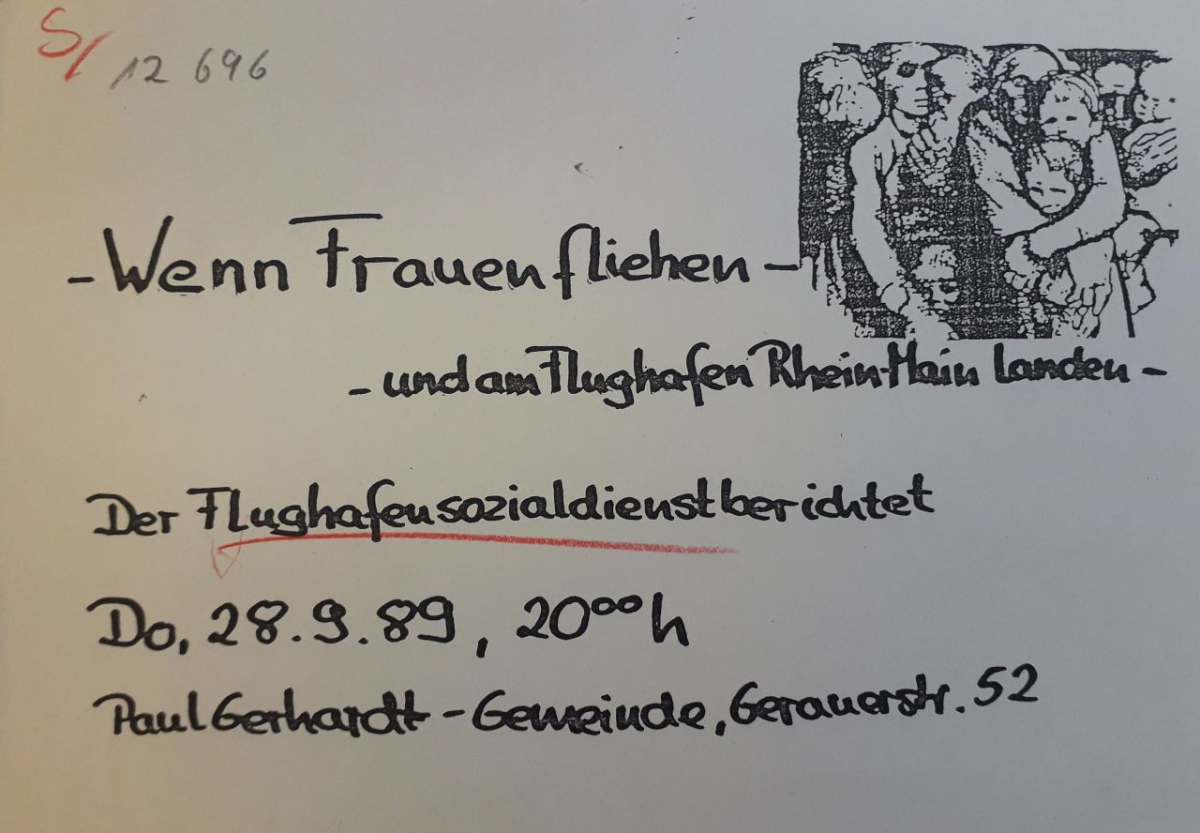 S/ 12 696
- Wenn Frauen fliehen -
- und am Flughafen Rhein-Main landen -
Der Flughafensozialdienst berichtet
Do, 28.9.89, 20⁰⁰ h
Paul Gerhardt - Gemeinde, Gerauerstr. 52